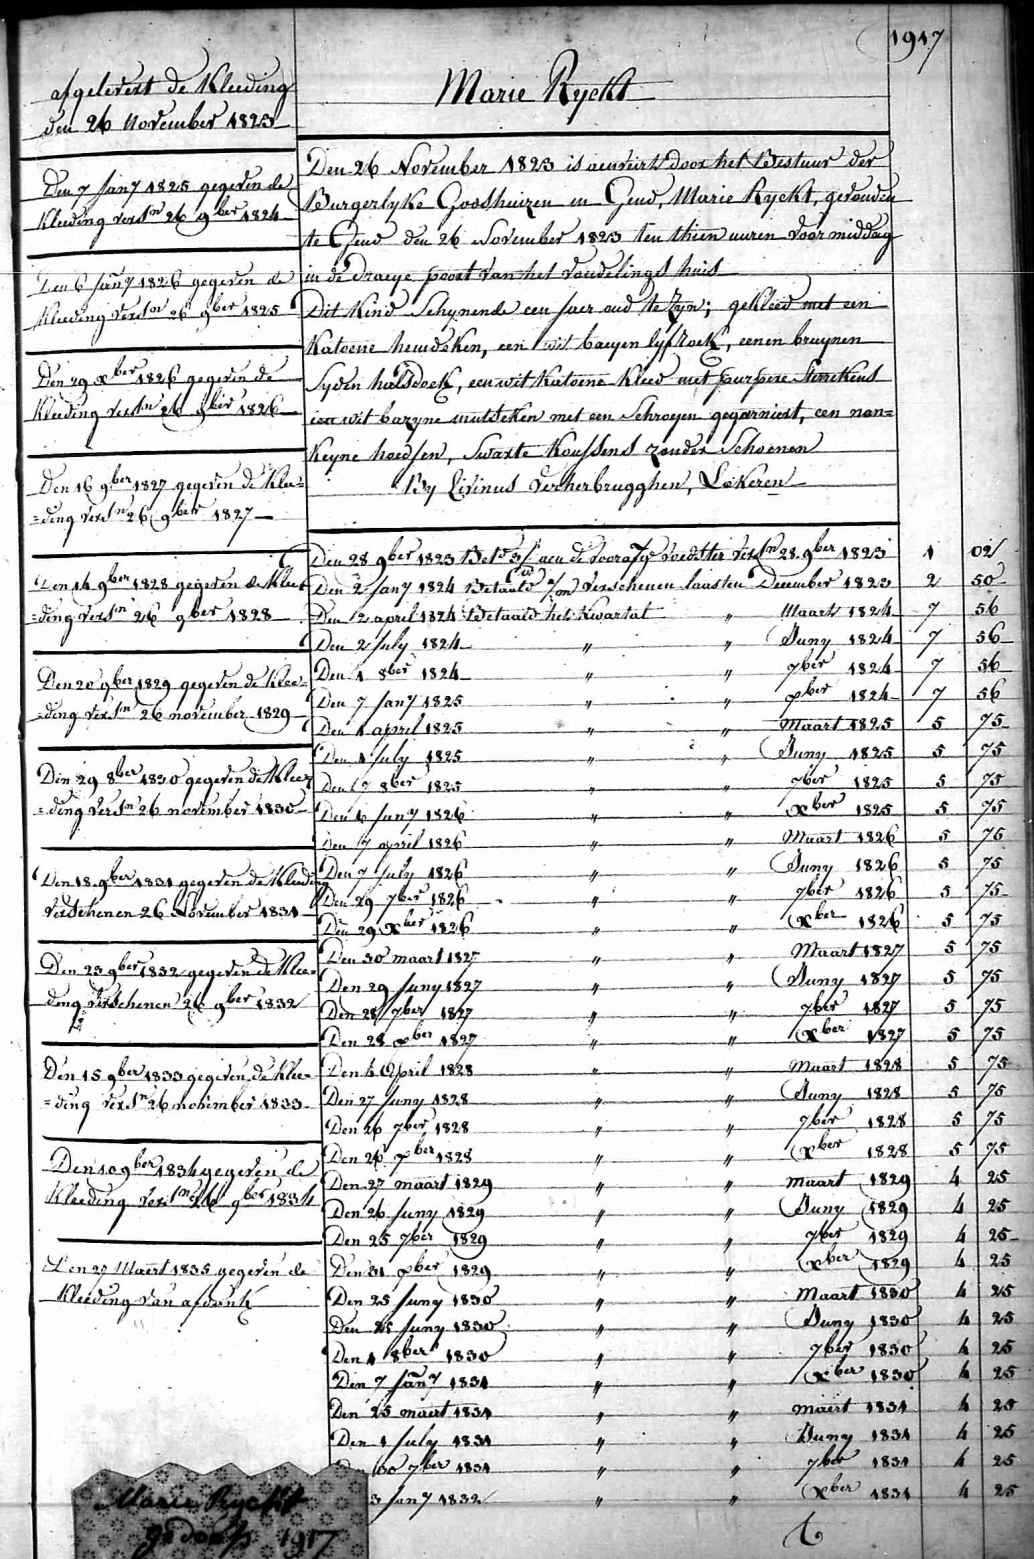 1917
afgelevert de Kleeding
den 26 November 1823
Den 7 Jany 1825 gegeven de
Kleeding versn 26 9ber 1824
Den 6 Jany 1826 gegeven de
Kleeding versn 26 9ber 1825
Den 29 xber 1826 gegeven de
Kleeding versn 26 9ber 1826
Den 16 9ber 1827 gegeven de Klee=
=ding versn 26 9ber 1827
Den 14 9ber 1828 gegeven de Klee=
=ding versn 26 9ber 1828
Den 20 9ber 1829 gegeven de Klee=
=ding versn 26 november 1829
Den 29 8ber 1830 gegeven de Klee=
=ding versn 26 november 1830
Den 18 9ber 1831 gegeven de Kleeding
verschenen 26 November 1831
Den 23 9ber 1832 gegeven de Klee=
ding verschenen 26 9ber 1832
Den 15 9ber 1833 gegeven de Klee=
=ding versn 26 november 1833
Den 10 9ber 1834 gegeven de
Kleeding versn 26 9ber 1834
Den 27 Maert 1835 gegeven de
Kleeding van afdank
Marie Ryckt
Den 26 November 1823 is aenveirt door het Bestuur der
Burgerlyke Godshuizen in Gend, Marie Ryckt, gevonden
te Gend den 26 November 1823 ten thien uuren voormiddag
in de Draeye poort van het vondelings huis
Dit Kind Schynende een Jaer oud te zyn; gekleed met een
Katoene hemdeken, een wit baeyen lyfrock, eenen bruynen
Syden halsdoek, een wit Katoene Kleed met purpere Sterrekens
een wit bazyne mutsken met een Schroyen gegarniert, een nan=
Keyne hoedsen, Swarte Koussens zonder Schoenen
By Livinus Verherbrugghen, Lokeren
Den 28 9ber 1823 Bet aen de voorafge voedster versn 28 9ber 1823 1 02
Den 2 Jany 1824 Betaald verschenen laasten December 1823 2 50
Den 2 april 1824 Betaald het Kwartal " Maart 1824 7 56
Den 2 July 1824 " " Juny 1824 7 56
Den 1 8ber 1824 " " 7ber 1824 7 56
Den 7 Jany 1825 " " xber 1824 7 56
Den 1 april 1825 " " Maart 1825 5 75
Den 1 July 1825 " " Juny 1825 5 75
Den 7 8ber 1825 " " 7ber 1825 5 75
Den 6 Jany 1826 " " xber 1825 5 75
Den 7 april 1826 " " Maart 1826 5 75
Den 7 July 1826 " " Juny 1826 5 75
Den 29 7ber 1826 " " 7ber 1826 5 75
Den 29 xber 1826 " " xber 1826 5 75
Den 30 maart 1827 " " Maart 1827 5 75
Den 29 Juny 1827 " " Juny 1827 5 75
Den 28 7ber 1827 " " 7ber 1827 5 75
Den 28 xber 1827 " " xber 1827 5 75
Den 4 April 1828 " " Maart 1828 5 75
Den 27 Juny 1828 " " Juny 1828 5 75
Den 26 7ber 1828 " " 7ber 1828 5 75
Den 26 xber 1828 " " xber 1828 5 75
Den 27 maart 1829 " " maart 1829 4 25
Den 26 Juny 1829 " " Juny 1829 4 25
Den 25 7ber 1829 " " 7ber 1829 4 25
Den 31 xber 1829 " " xber 1829 4 25
Den 25 Juny 1830 " " Maart 1830 4 25
Den 25 Juny 1830 " " Juny 1830 4 25
Den 1 8ber 1830 " " 7ber 1830 4 25
Den 7 Jany 1831 " " xber 1830 4 25
Den 25 maert 1831 " " maert 1831 4 25
Den 1 July 1831 " " Juny 1831 4 25
30 7ber 1831 " " 7ber 1831 4 25
3 Jany 1832 " " xber 1831 4 25
Marie Ryckt
gedoopt 1917